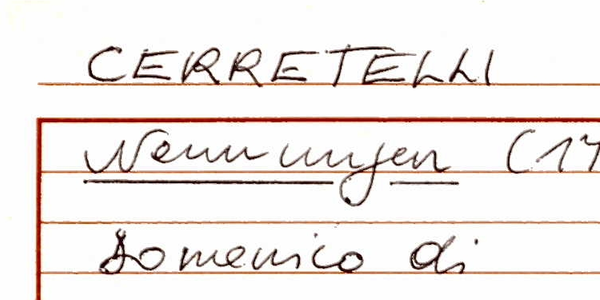 CERRETELLI
Nennungen (17
Domenico di